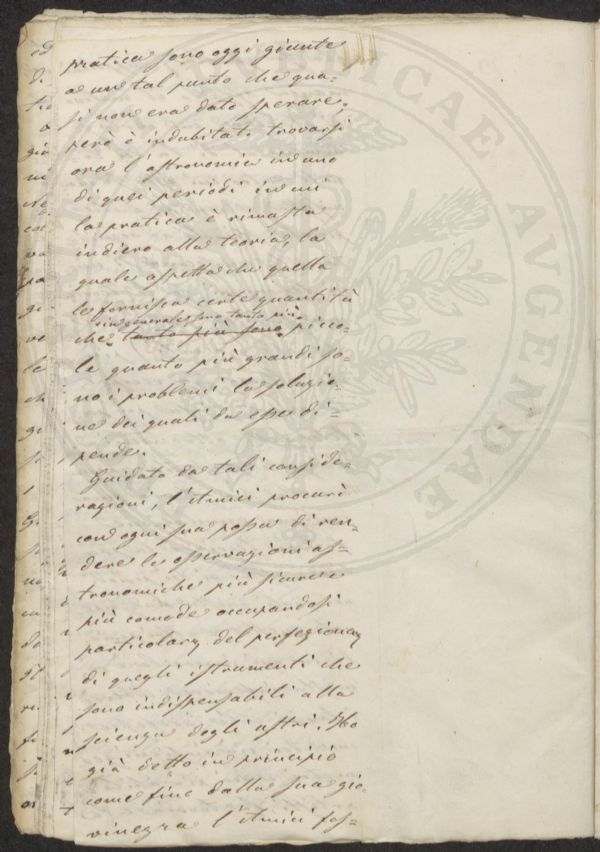 pratica sono oggi giunte
a un tal punto che qua-
si non era dato sperare,
però è indubitato trovarsi
ora l'astronomia in uno
di quei periodi in cui
la pratica è rimasta
indietro alla teoria, la
quale aspetta che quella
le fornisca certe quantità
in generale sono tanto più
che tanto più sono picco-
le quanto più grandi so-
no i problemi la soluzio-
ne dei quali da esse di-
pende.
Guidato da tali conside-
razioni, l'Amici procurò
con ogni sua possa di ren-
dere le osservazioni as-
tronomiche più sicure e
più comode occupandosi
particolarm del perfezionam
di quegli istrumenti che
sono indispensabili alla
scienza degli astri. Ho
già detto in principio
come fino dalla sua gio-
vinezza l'Amici fos-
AVGENDAE